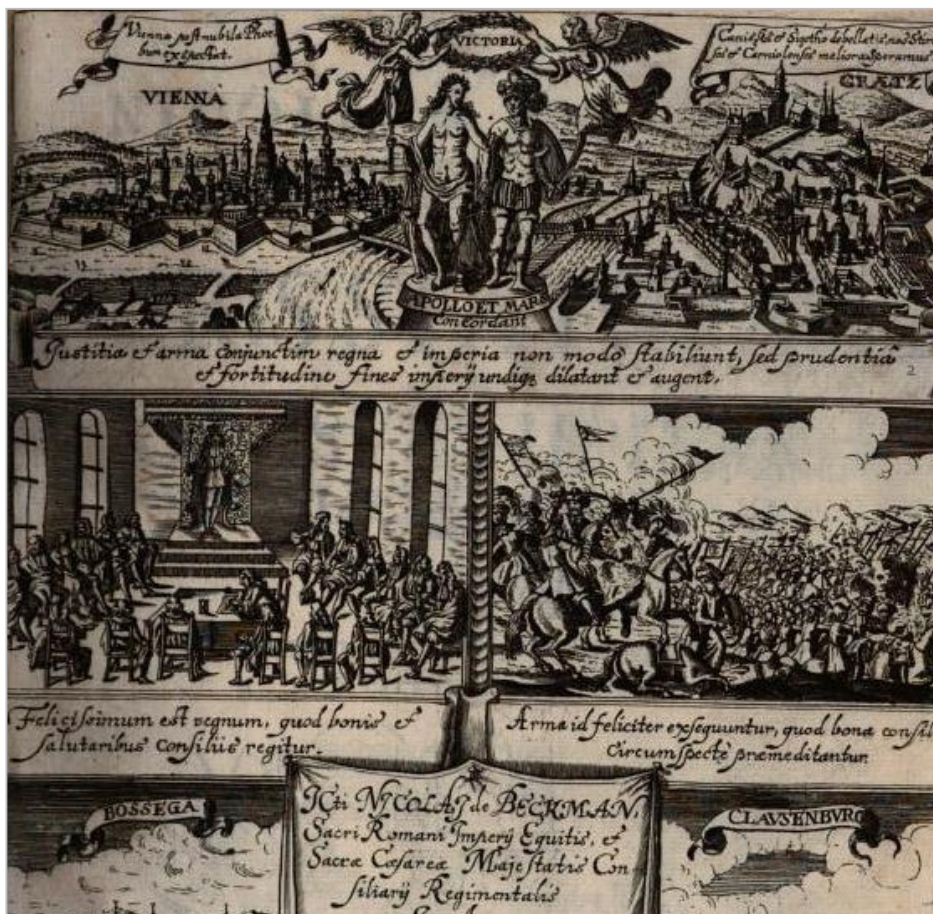 Vienna post nubila Phoe-
bum exspectat.
VICTORIA
Canisiâ et Sigetho debellatis, nos Stiri
se et Carniolenses meliora speramus
VIENNA
GRATZ
APOLLO ET MARS
Concordant
Justitia et arma conjunctim regna et imperia non modo stabiliunt, sed prudentiâ
et fortitudine fines imperij undiq; dilatant et augent.
2
Felicissimum est regnum, quod bonis et
salutaribus Consiliis regitur.
Arma id feliciter exsequuntur, quod bonâ consil
Circumspecte præmeditantur.
BOSSEGA
CLAVSENBVRG
ICti NICOLAJ de BECKMAN,
Sacri Romani Imperij Equitis, et
Sacræ Cæsareæ Majestatis Con
siliarij Regimentalis